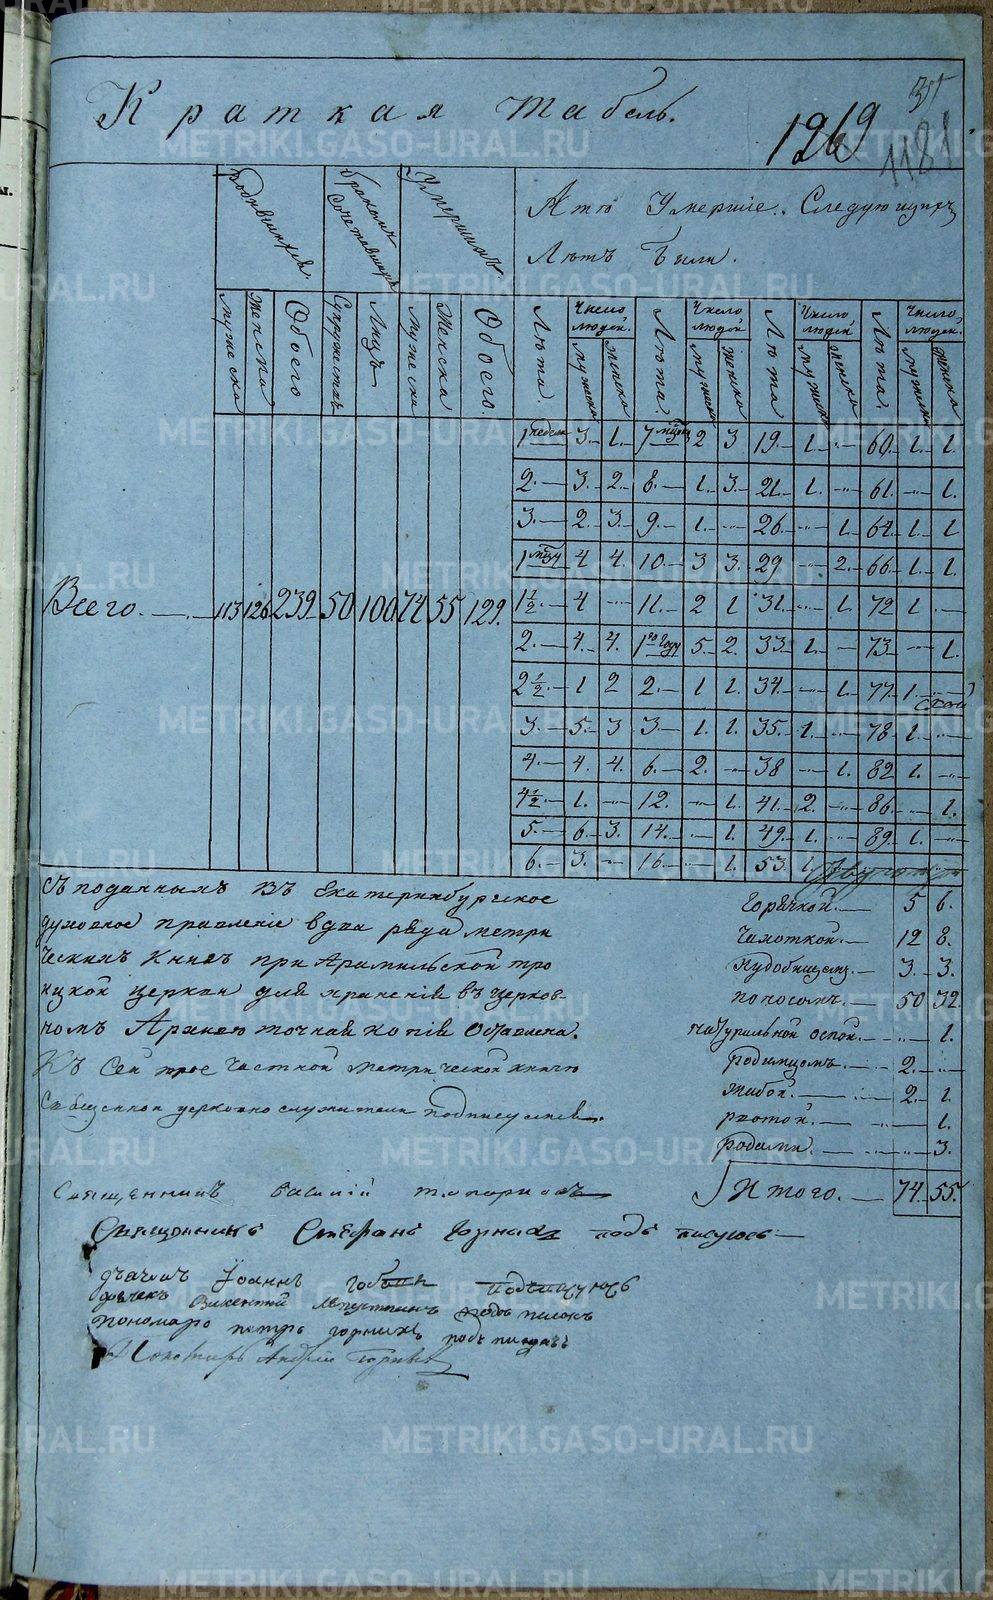 Краткая табель.
35
1269
1181
Родившихся.
бракомъ Сочетавшихся
Умершихъ.
А то Умершіе. Следующихъ
Лѣтъ были.
Мужеска Женска Обоего Супружествъ Лицъ Мужеска Женска Обоего. Лѣта. Число людей. Мужеска Женска Лѣта. Число людей Мужеска Женска Лѣта Число людей Мужеска Женска Лѣта. Число людей. Мужеска Женска
1 недели 3. 1. 7 мѣсяц 2 3 19. 1. — 60. 1. 1.
2. 3. 2. 8. 1. 3. 21. 1. — 61. — 1.
3. 2. 3. 9. 1. — 26. — 1. 64. 1. 1
1 мѣзу 4 4. 10. 3 3. 29 — 2. 66. 1. 1.
Всего. 113 126 239 50 100 74 55 129. 1½. 4 — 11. 2 1 31. — 1. 72 1. —
2. 4. 4. 1 го году 5. 2. 33. 1. — 73. — 1.
2½. 1 2 2. 1 1. 34. — 1. 77. 1. —
3. 5. 3 3. 1. 1. 35. 1. — 78. 1. —
4. 4. 4. 6. 2. — 38 — 1. 82 1. —
4½. 1. — 12. — 1. 41. 2. — 86. — 1.
5. 6. 3. 14. — 1. 49. 1. — 89. 1. —
6. 3. — 16. — 1. 53. 1.
Съ поданныхъ въ Екатеринбургское
духовное правленіе въ два ряда метри
ческихъ книгъ при Арамильской тро
ицкой церкви для храненія въ церков-
номъ Архивѣ точная копія Оставлена.
Къ Сей трое частной метрической книгѣ
Священно и церковно служители подписуемся.
Горячкой. 5 6.
Чахоткой. 12 8.
3. 3.
поносомъ. 50 32.
натуральной оспой. — 1.
Родимцемъ. 2. —
Жабой. 2. 1.
рвотой. — 1.
Родами. — 3.
Итого. 74. 55.
Священникъ Василій Топорковъ
Священникъ Стефанъ Горныхъ подъписуюсь
дъячекъ Іоаннъ подъписуюсь
дьячекъ Викентій подъписался
пономарь петръ горныхъ подъписался
Пономарь Андрей
METRIKI.GASO-URAL.RU